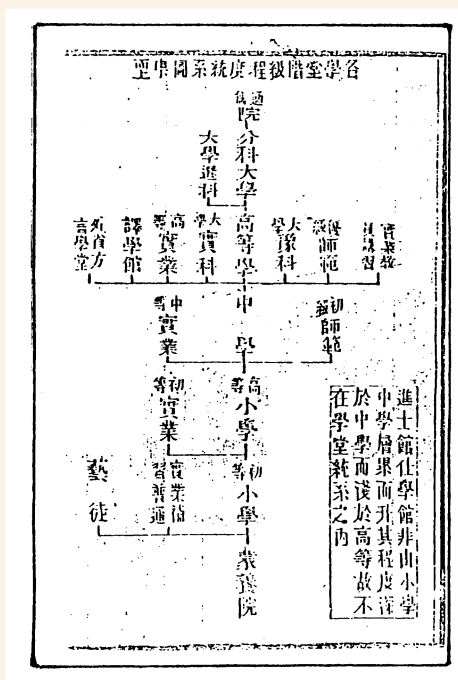 各學堂階級程度統系圖
通儒院
分科大學
大學選科
實業教員講習
優級師範
大學豫科
高等學
大學實科
高等實業
譯學館
外省方言學堂
初級師範
中學
中等實業
高等小學
初等實業
初等小學
實業補習普通
藝徒
蒙養院
進士館仕學館非由小學
中學層累而升其程度深
於中學而淺於高等故不
在學堂統系之內